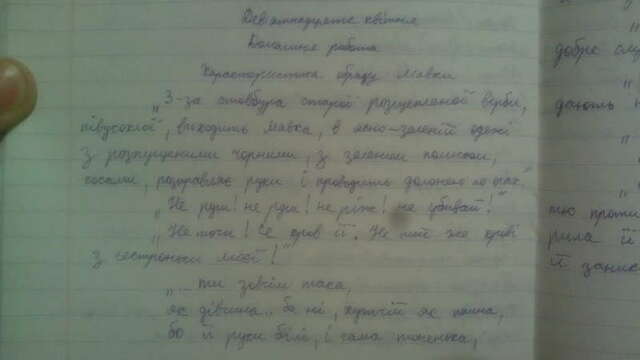 Дев'ятнадцяте квітня
Домашня робота
Характеристика образу Мавки
„З-за стовбура старої розщепленої верби,
півусохлої, виходить Мавка, в ясно-зеленій одежі
з розпущеними чорними, з зеленим полиском,
косами, розправляє руки і проводить долонею по очах."
„Не руш! не руш! не ріж! не убивай!"
„Не точи! Се кров її. Не пий же крові
з сестроньки моєї!"
„... ти зовсім така,
як дівчина.. ба ні, хутчій як панна,
бо й руки білі, і сама тоненька,
добре
дають
тю
рила її
й заник